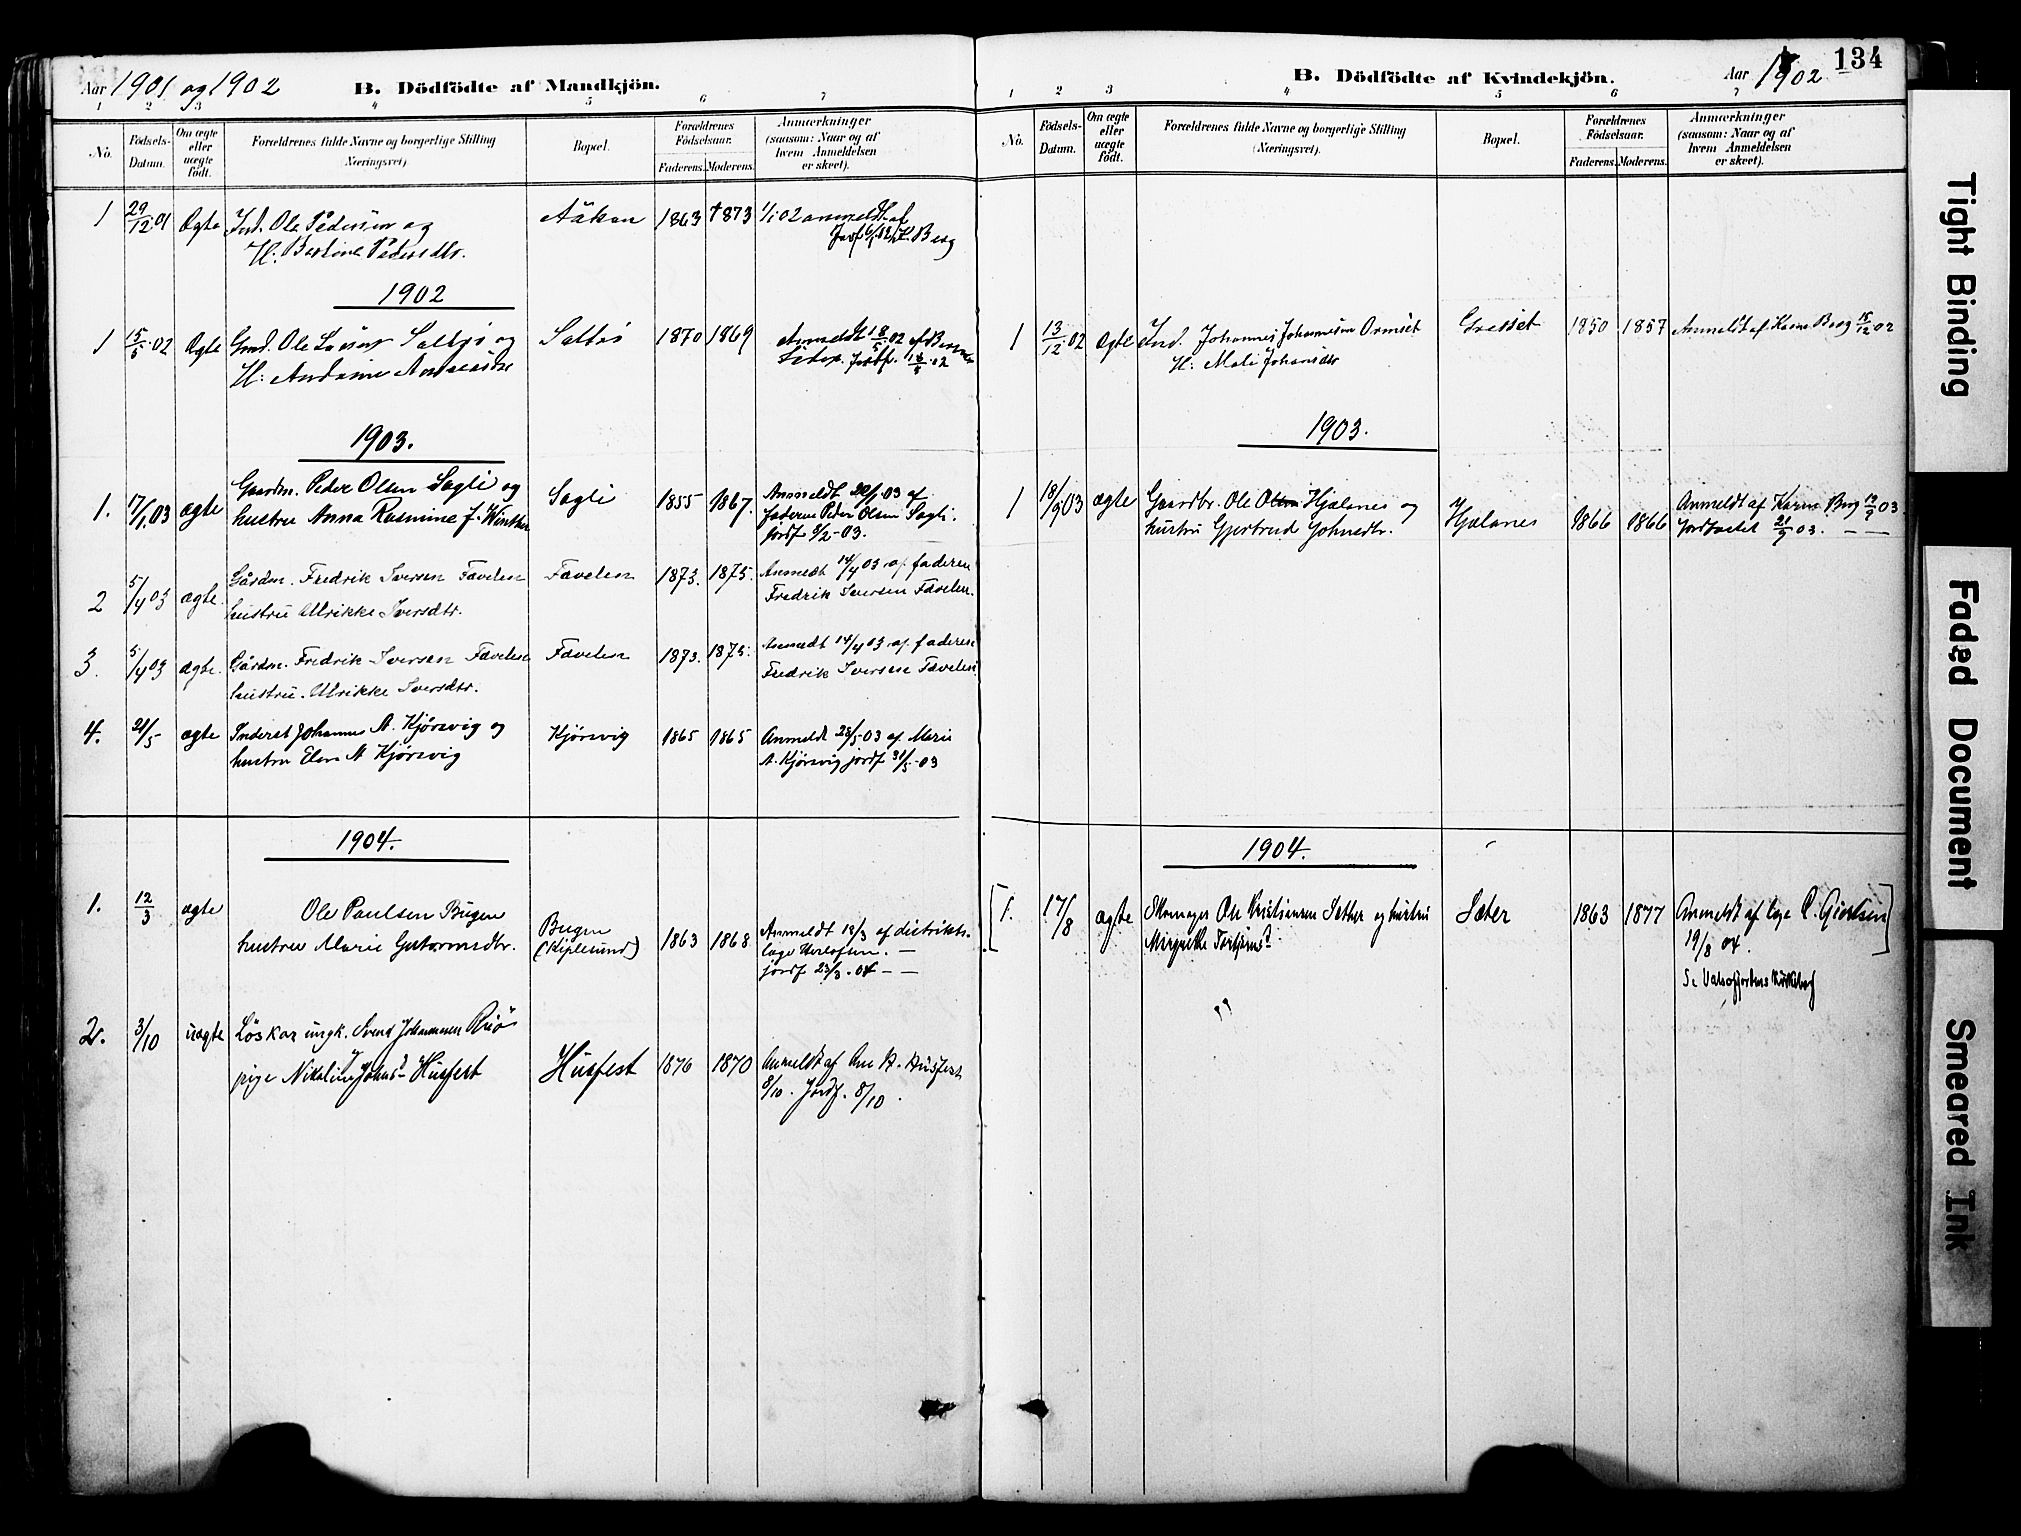 Aar 1901 og 1902
B. Dödfödte af Mandkjön.
1 2 3 4 5 6 7
No. Födsels-Datum. Om ægte eller uægte födt. Forældrenes fulde Navne og borgerlige Stilling (Næringsvei). Bopæl. Forældrenes Födselsaar. Faderens. Moderens. Anmærkninger (saasom: Naar og af hvem Anmeldelsen er skeet).
1 29/12 01 Ægte Ind. Ole Pedersen og Aaken 1863 1873 1/1 02 anmeldt af
H: Berthine Pedersdtr. Jordf. Berg
1902
1 15/5 02 Ægte Ole Saltøs og Saltøs 1870 1869 Anmeldt 18/5 02 af
H: Jordf. 18/5 02
1903.
1. 17/1 03 ægte Gaardm. Peder Olsen Sagli og Sagli 1855 1867. Anmeldt 20/1 03 af
hustru Anna Rasmine f. Winther faderen Peder Olsen Sagli.
jordf 8/2-03.
2 5/4 03 ægte. Gårdm. Fredrik Iversen Favelen Favelen 1873. 1875. Anmeldt 14/4 03 af faderen
hustru Ulrikke Iversdtr. Fredrik Iversen Favelen.
3. 5/4 03 ægte. Gårdm. Fredrik Iversen Favelen Favelen 1873. 1875. Anmeldt 14/4 03 af faderen
hustru. Ulrikke Iversdtr. Fredrik Iversen Favelen
4. 21/5 ægte Inderst Johannes A. Kjørsvig og Kjörsvig 1865 1865 Anmeldt 23/5-03 af Marie
hustru Elen A Kjørsvig A. Kjörsvig jordf 31/5-03
1904.
1. 12/3 ægte Ole Paulsen Bugen Bugen 1863 1868 Anmeldt 18/3 af distrikts-
hustru Marie Guttormsdtr. læge Herlofsen. —
jordf 23/3. 04 — —
2. 3/10 uægte Löskar ungk. Svend Johannessen
pige Nikoline Johns.d Husfest Husfest 1876 1870 Anmeldt af Ane H. Husfest
8/10. Jordf. 8/10.
B. Dödfödte af Kvindekjön.
Aar 1902
134
1 2 3 4 5 6 7
No. Födsels-Datum. Om ægte eller uægte födt. Forældrenes fulde Navne og borgerlige Stilling (Næringsvei). Bopæl. Forældrenes Födselsaar. Faderens. Moderens. Anmærkninger (saasom: Naar og af hvem Anmeldelsen er skeet).
1 13/12 02 Ægte Ind. Johannes Johannesen Ormset Gresset 1850 1857 Anmeldt af Karen Berg 15/12 02
H: Mali Johansdtr
1903.
1 18/9 03 ægte Gaardbr. Ole Olsen Hjelanes og Hjelanes 1866 1866 Anmeldt af Karen Berg 19/9 03.
hustru Gjertrud Johnsdtr. Jordfæstet 21/9 03. — —
1904.
[1. 17/8 ægte Skomager Ole Kristiansen Sæther og hustru Sæter 1863 1877 Anmeldt af læge
19/8 04.]
Se Valsøfjordens Kirkebog
Tight Binding
Faded Document
Smeared Ink